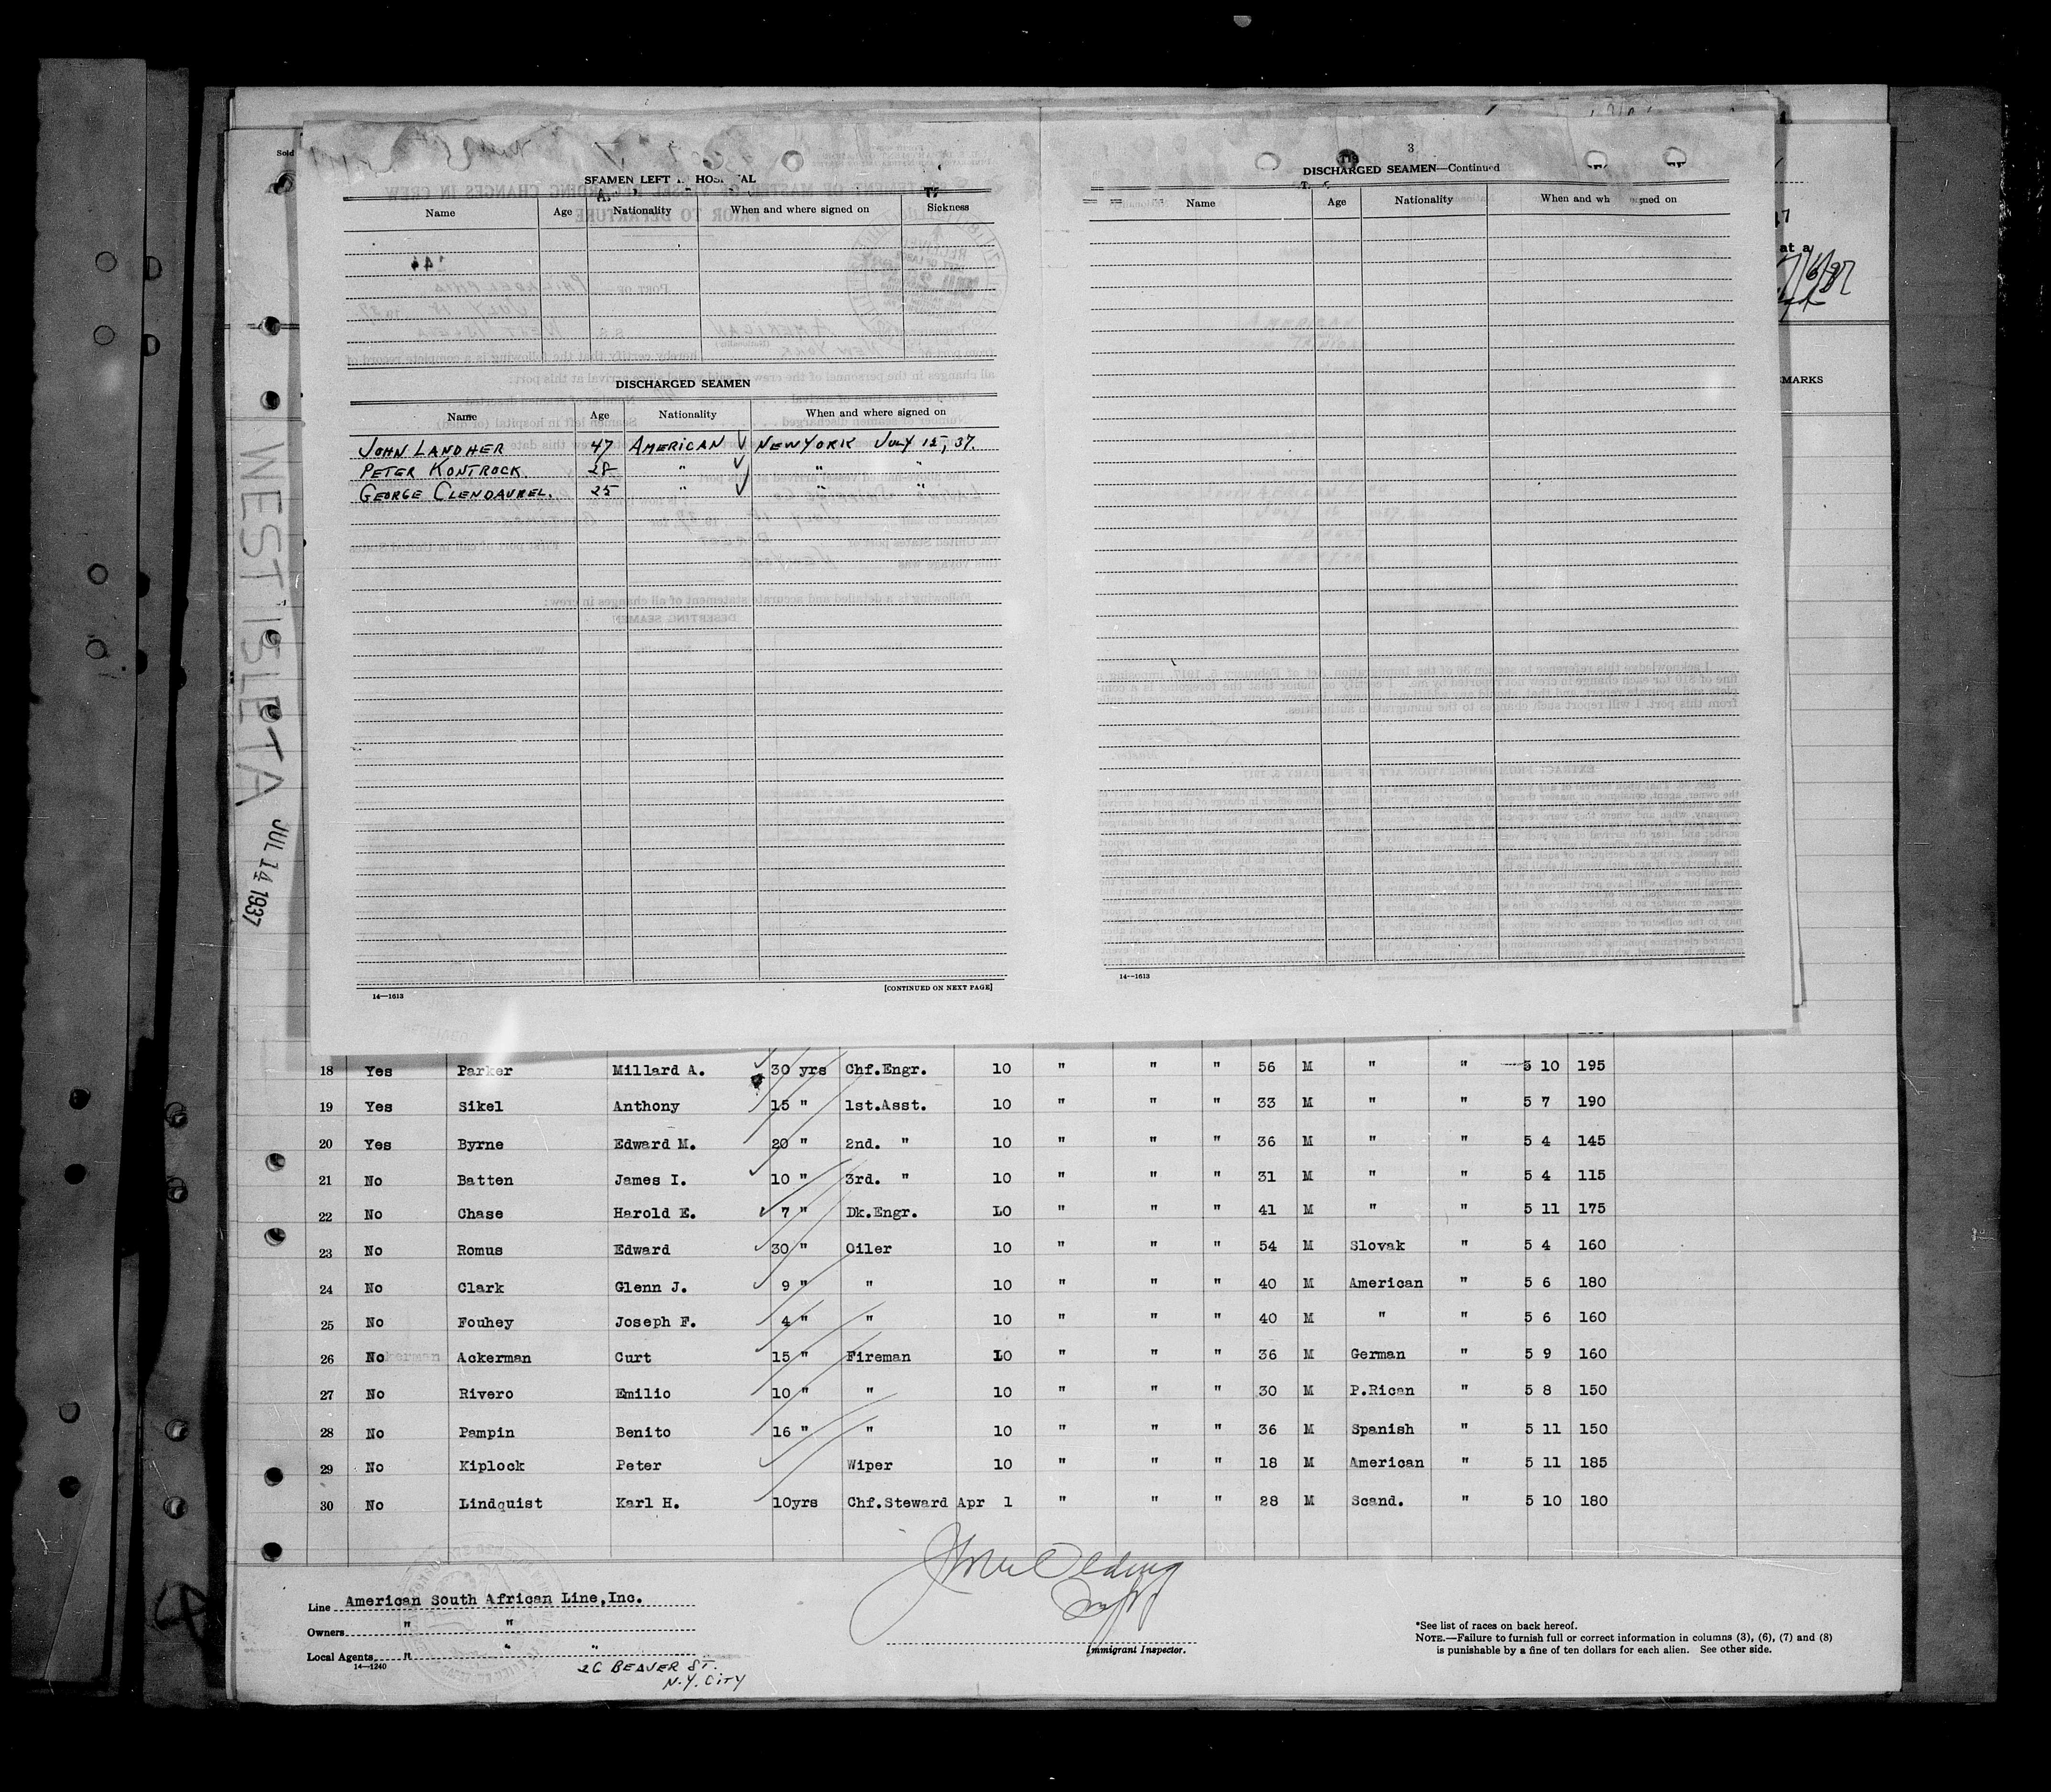 Sold
SEAMEN LEFT HOSPITAL
Name Age Nationality When and where signed on Sickness
DISCHARGED SEAMEN
Name Age Nationality When and where signed on
JOHN LANDHER 47 AMERICAN √ NEW YORK JULY 12, 37.
PETER KONTROCK 28 " √ " "
GEORGE CLENDAUREL. 25 " √ " "
14—1613 [CONTINUED ON NEXT PAGE]
3
DISCHARGED SEAMEN—Continued
Name Age Nationality When and wh gned on
14—1613
at a
MARKS
WEST ISLETA
JUL 14 1937
18 Yes Parker Millard A. 30 yrs Chf.Engr. 10 " " " 56 M " " 5 10 195
19 Yes Sikel Anthony 15 " 1st.Asst. 10 " " " 33 M " " 5 7 190
20 Yes Byrne Edward M. 20 " 2nd. " 10 " " " 36 M " " 5 4 145
21 No Batten James I. 10 " 3rd. " 10 " " " 31 M " " 5 4 115
22 No Chase Harold E. 7 " Dk.Engr. 10 " " " 41 M " " 5 11 175
23 No Romus Edward 30 " Oiler 10 " " " 54 M Slovak " 5 4 160
24 No Clark Glenn J. 9 " " 10 " " " 40 M American " 5 6 180
25 No Fouhey Joseph F. 4 " " 10 " " " 40 M " " 5 6 160
26 No Ackerman Curt 15 " Fireman 10 " " " 36 M German " 5 9 160
27 No Rivero Emilio 10 " " 10 " " " 30 M P.Rican " 5 8 150
28 No Pampin Benito 16 " " 10 " " " 36 M Spanish " 5 11 150
29 No Kiplock Peter Wiper 10 " " " 18 M American " 5 11 185
30 No Lindquist Karl H. 10yrs Chf.Steward Apr 1 " " " 28 M Scand. " 5 10 180
Line American South African Line,Inc.
Owners " "
Local Agents " " "
14—1240
26 BEAVER ST.
N.Y. CITY
Immigrant Inspector.
*See list of races on back hereof.
NOTE.—Failure to furnish full or correct information in columns (3), (6), (7) and (8)
is punishable by a fine of ten dollars for each alien. See other side.